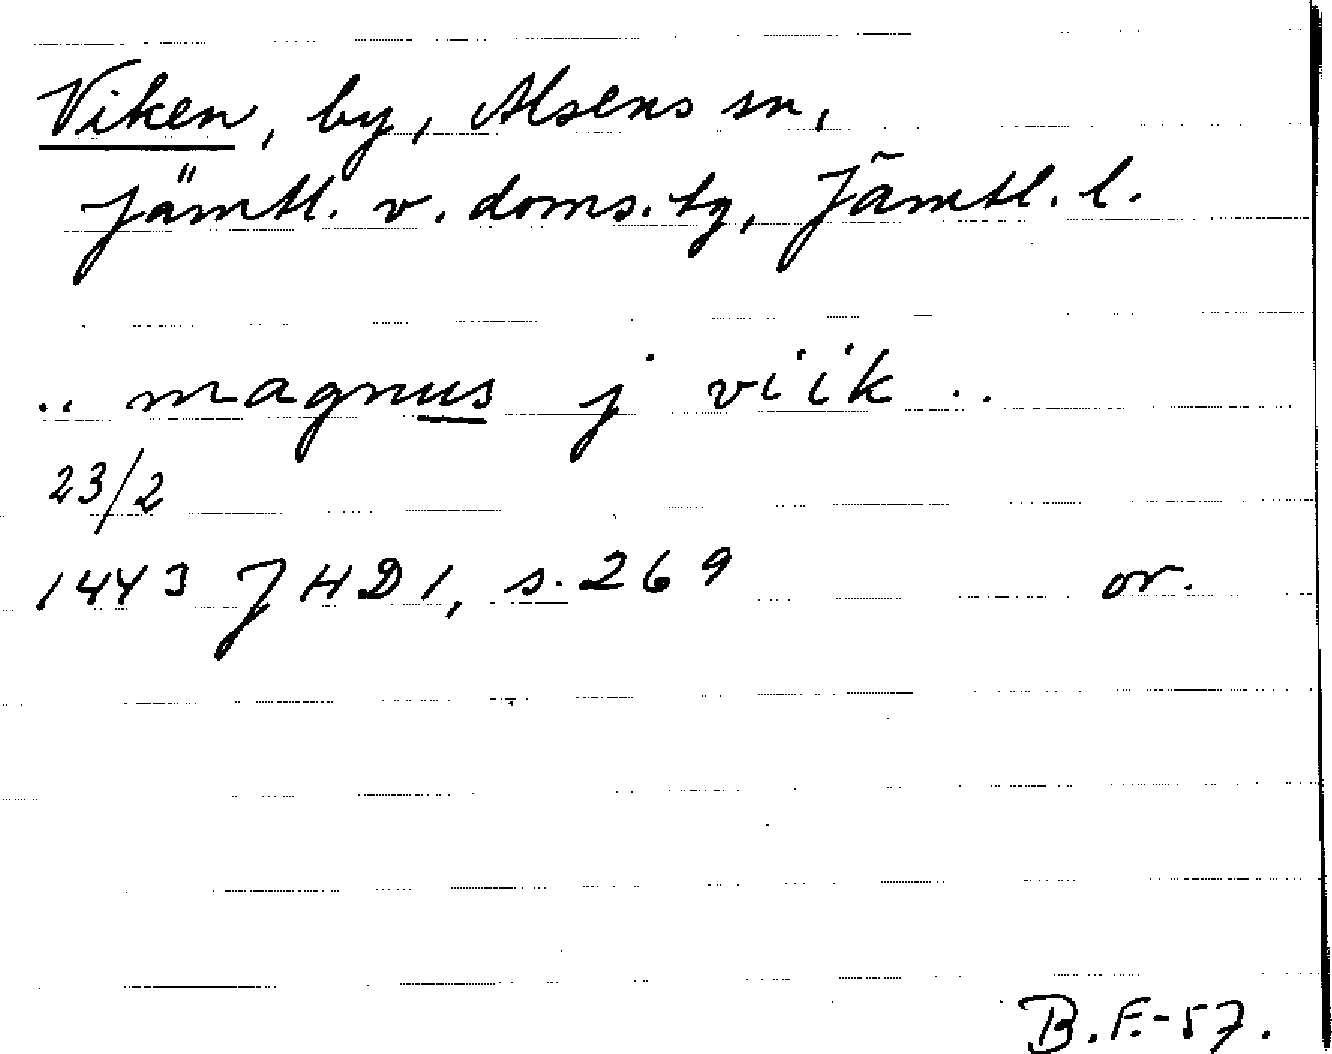 Viken, by, Alsens sn,
Jämtl. v. doms.tg, Jämtl. l.
.. magnus j viik ..
23/2
1443 JHD 1, s. 269 or.
B.F.-57.